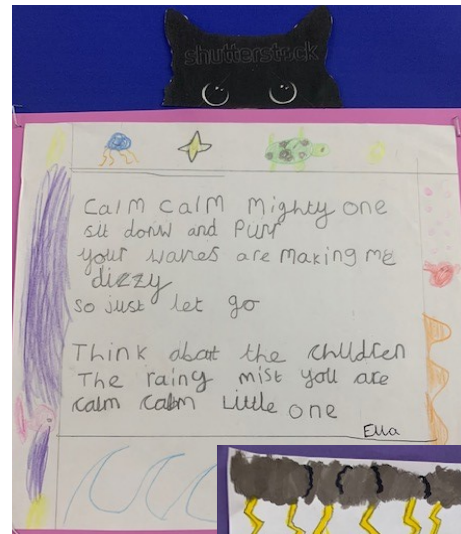 shutterstock
Calm calm Mighty one
sit donw and Purr
your waves are making me
dizzy
so just let go
Think abart the children
The raing mist you are
calm calm Little one
Ella